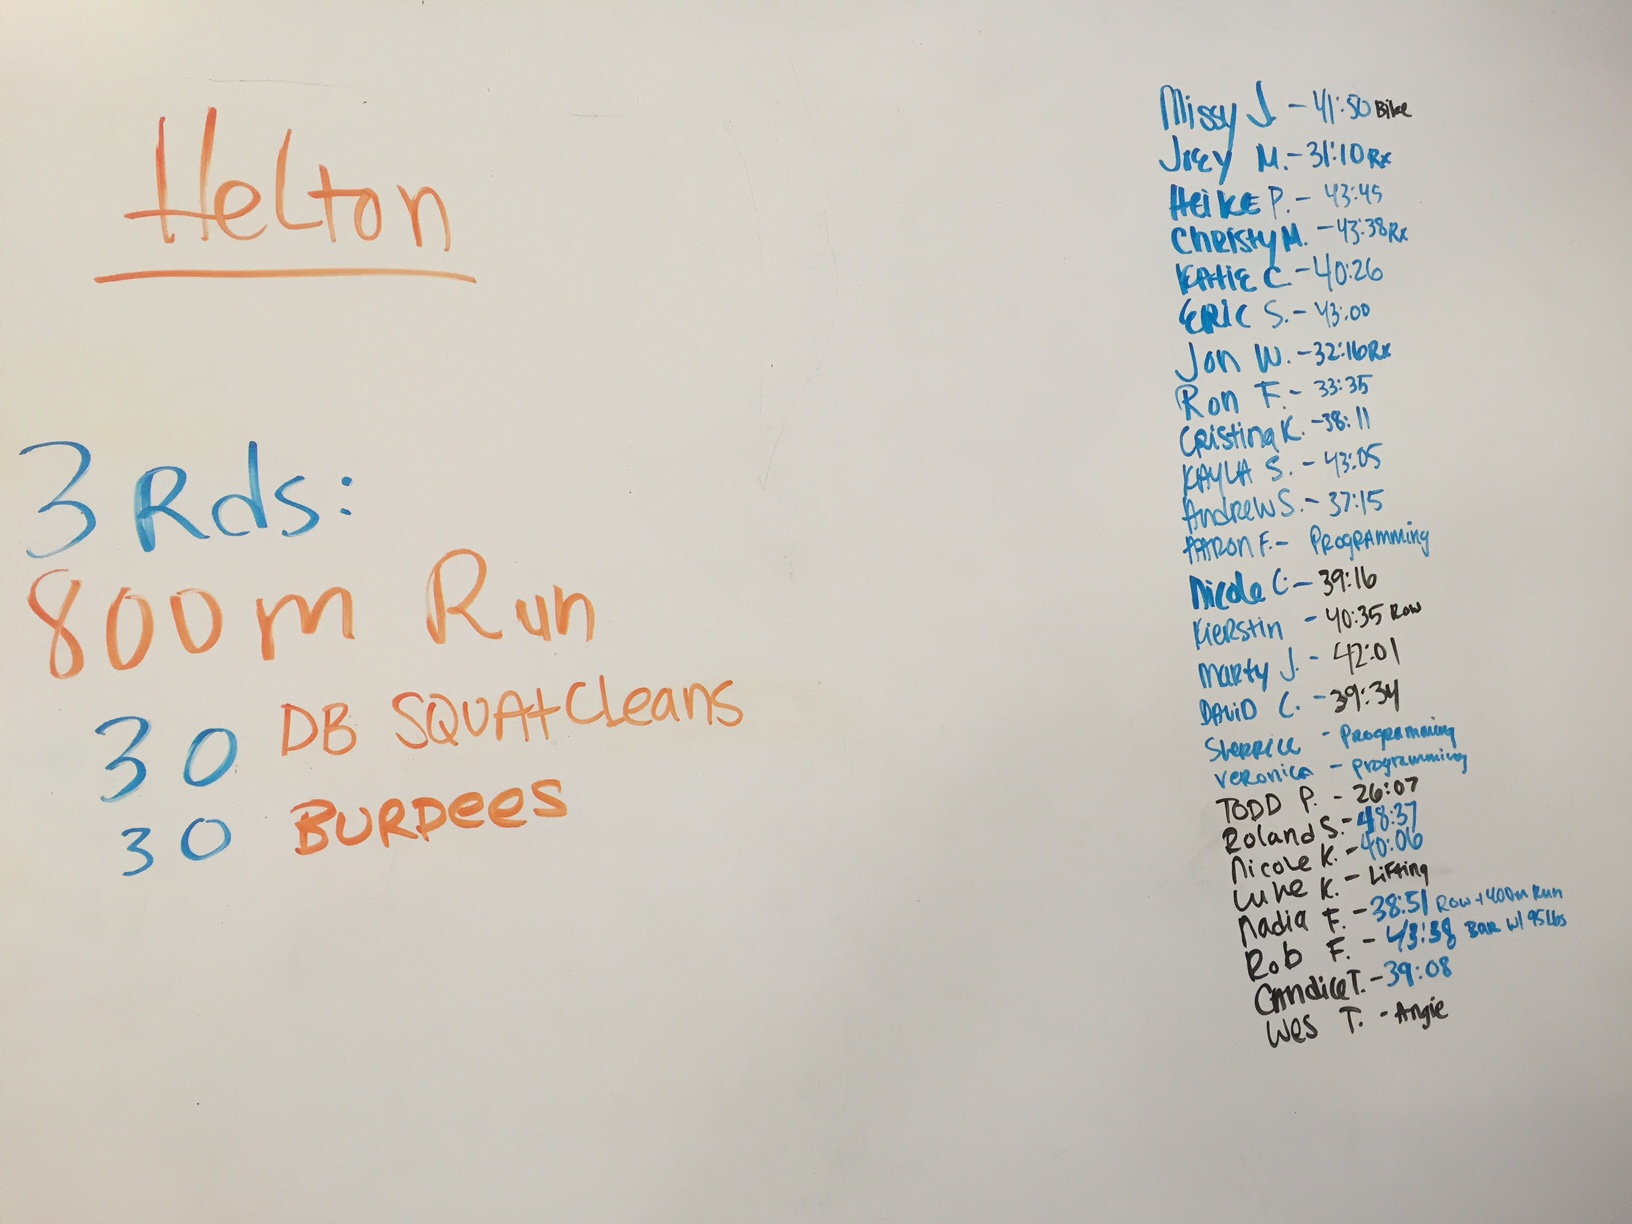 Helton
3 Rds:
800m Run
30 DB SQUAt Cleans
30 BURPees
Missy J. - 41:50 Bike
Joey M. - 31:10 Rx
HeikE P. - 43:45
ChRisty M. - 43:38 Rx
KAtiE C. - 40:26
ERIC S. - 43:00
Jon W. - 32:16 Rx
Ron F. - 33:35
CRistina K. - 38:11
KAYLA S. - 43:05
AndREW S. - 37:15
AARON F. - PROgRAmming
Nicole C - 39:16
KieRstin - 40:35 Row
Marty J. - 42:01
DAViD C. - 39:34
- PROgRAmming
VERONica - programming
TODD P. - 26:07
Roland S. - 48:37
Nicole K. - 40:06
Luke K. - LiFting
Nadia F. - 38:51 Row + 400m Run
Rob F. - 43:38 BAR w/ 95 lbs
CAndice T. - 39:08
Wes T. - Angie